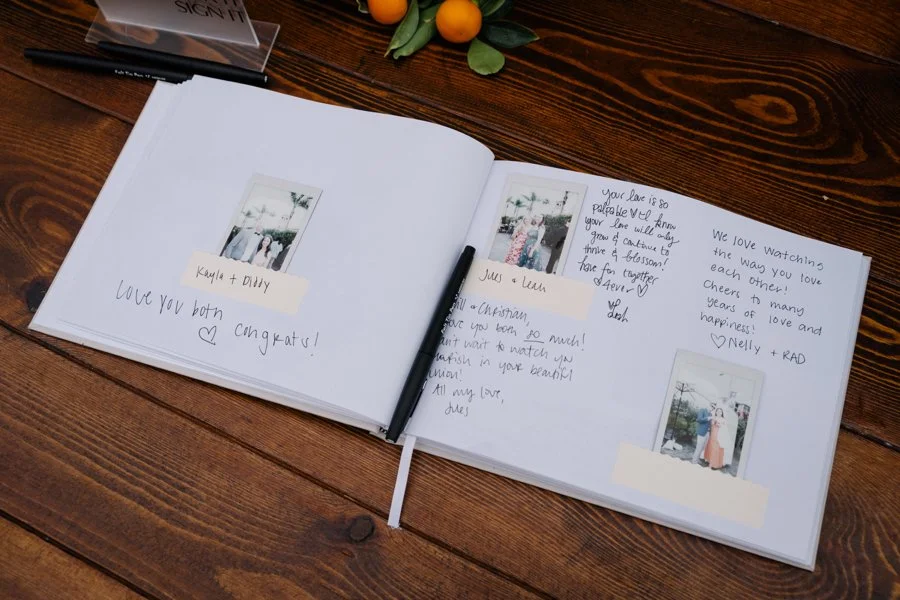 SIGN IT
Kayla + Diddy
Love you both
♡ Congrats!
Jules & Leah
& Christian,
you both so much!
wait to watch you
in your beautiful
All my love,
Jules
your love is so
palpable
your love will only
grow & continue to
thrive & blossom!
have fun together
♡ 4ever ♡
We love watching
the way you love
each other!
Cheers to many
years of love and
happiness!
♡ Nelly + RAD